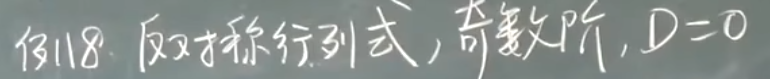 例118. 反对称行列式,奇数阶,D=0